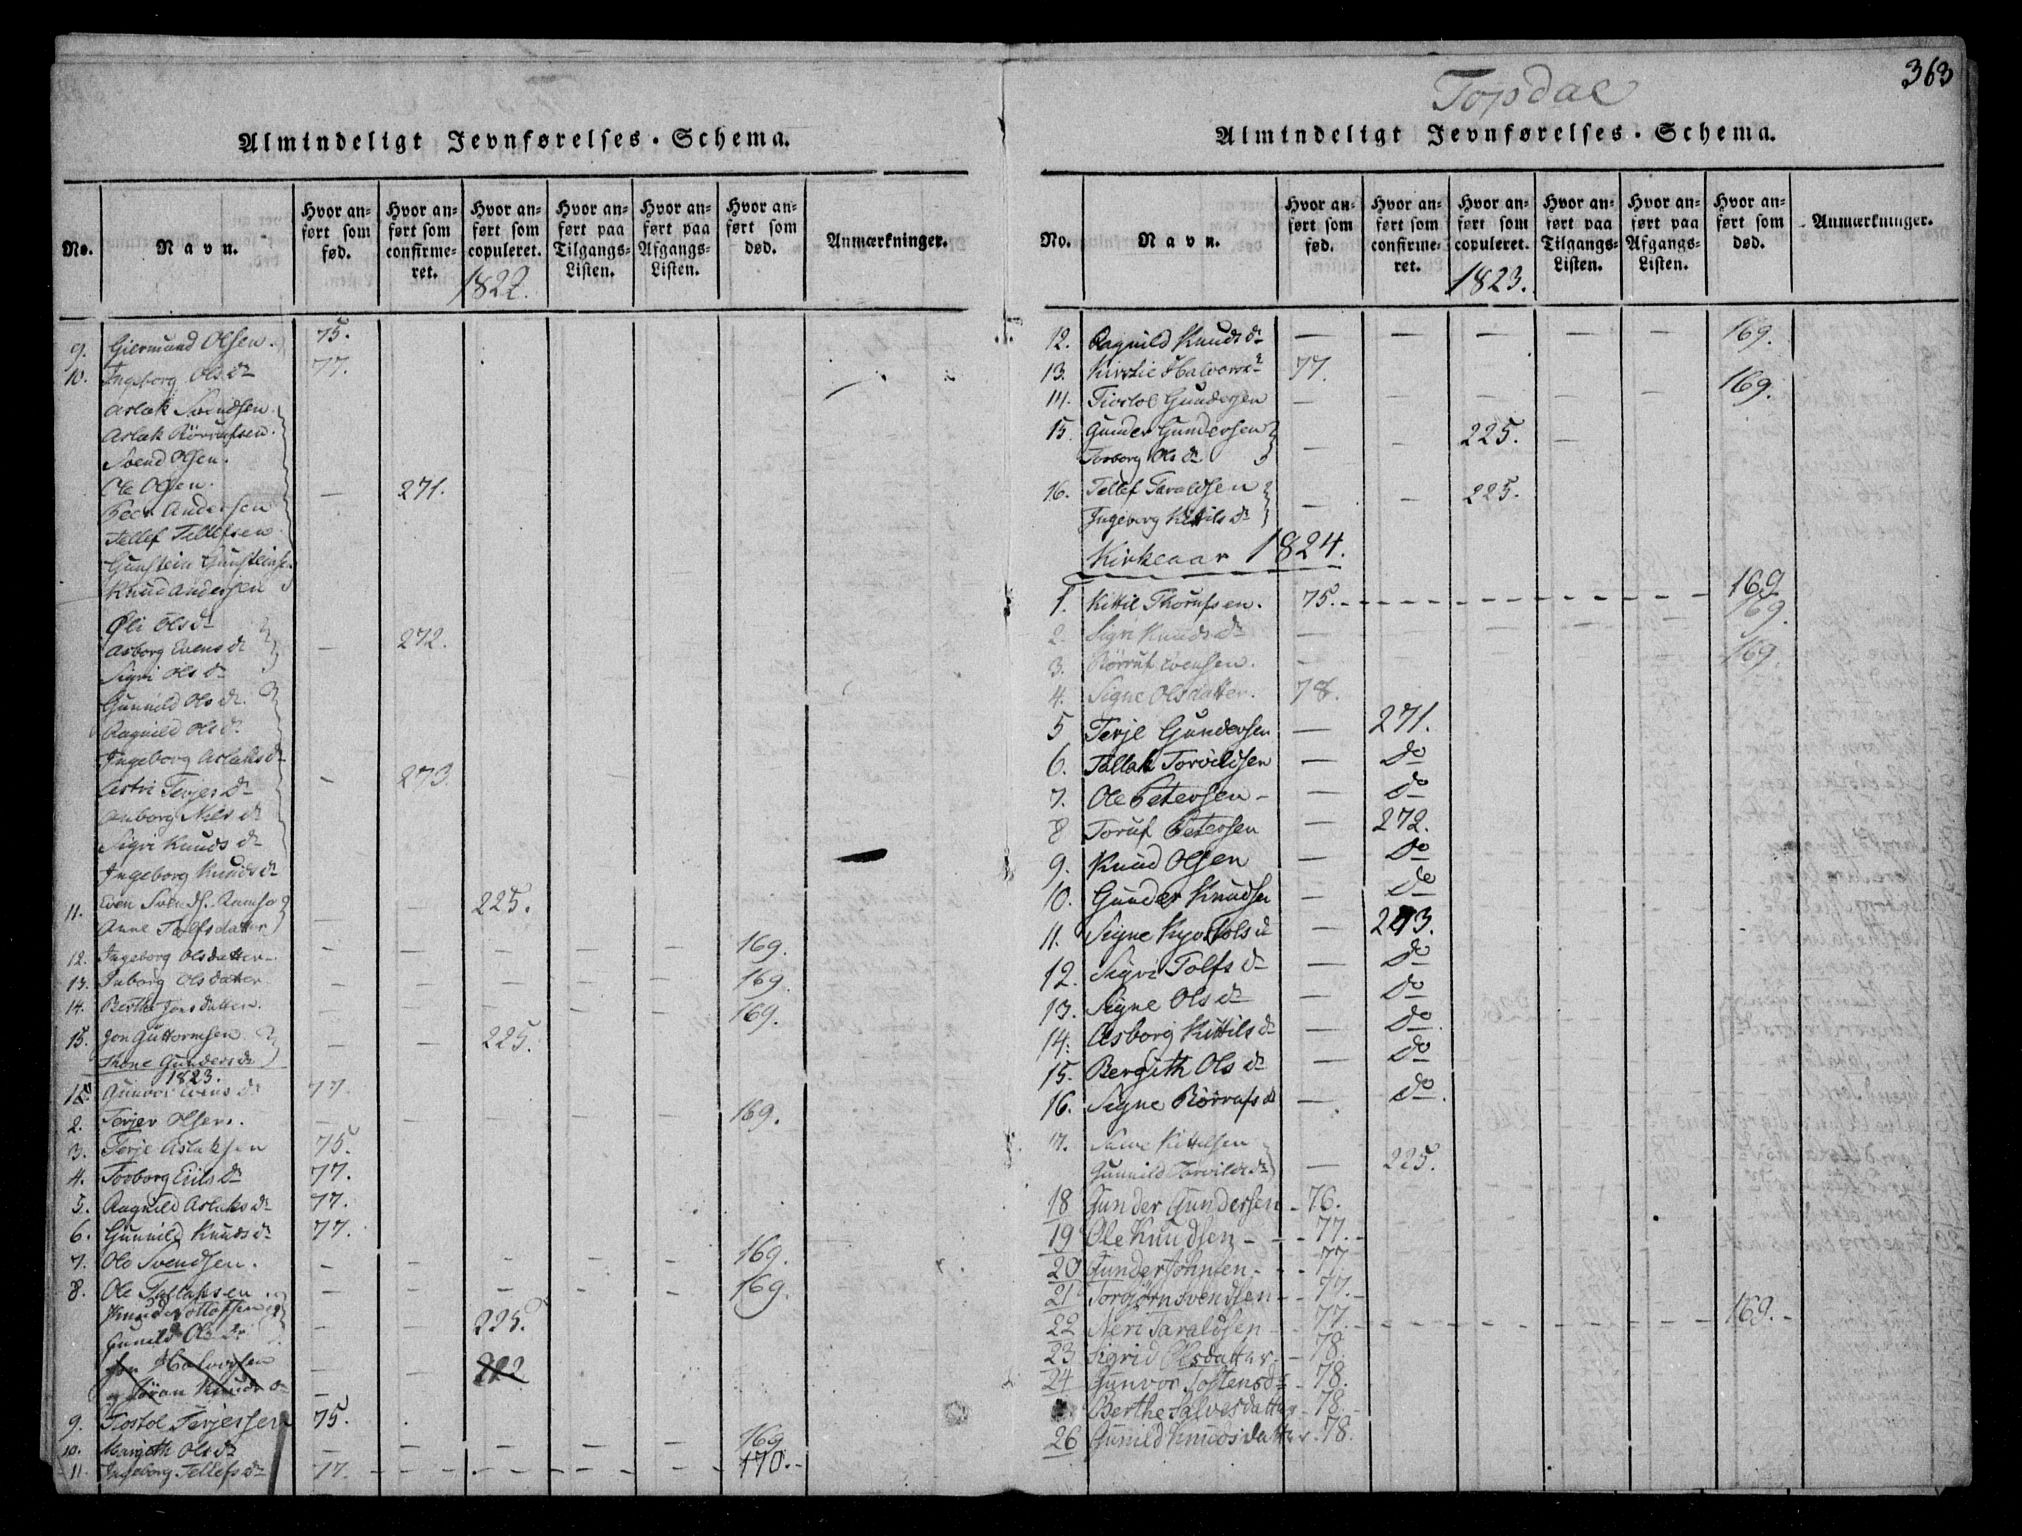 Almindeligt Jevnførelses-Schema.
No. Navn. Hvor anført som fød. Hvor anført som confirmeret. Hvor anført som copuleret. Hvor anført paa Tilgangs-Listen. Hvor anført paa Afgangs-Listen. Hvor anført som død. Anmærkninger.
1822.
9. Giermund Olsen. 75.
10. Ingeborg Ols dr 77.
Aslak Svendsen.
Aslak Rørrufsen.
Svend Olsen.
Ole Olsen. — 271.
Peer Andersen
Tellef Tellefsen
Gunstein Gunsteins.
Knud Andersen
Øli Ols dr
Asborg Evens dr — 272.
Sigri Ols dr
Gunnild Ols dr
Ragnild Ols dr
Ingeborg Aslaks dr
Astri Terjes dr — 273.
Anborg Nils dr
Sigri Knuds dr
Ingeborg Knuds dr
11. Even Svends. — — 225.
Anne Tolfsdatter
12. Ingeborg Olsdatter — — — — — 169.
13. Inborg Olsdatter — — — — — 169.
14. Berthe Jonsdatter. — — — — — 169.
15. Jon Guttormsen — — 225.
Thone Gunders dr
1823.
Gunvor Evens dr 77.
2. Terjer Olsen. — — — — — 169.
3. Terje Aslaksen 75.
4. Torborg Eriks dr 77.
5. Ragnild Aslaks dr 77.
6. Gunnild Knuds dr 77.
7. Ole Svendsen. — — — — — 169.
8. Ole Tallaksen — — — — — 169.
Knud Tollefsen
Gunild Ols dr — — 225.
Jon Halvorsen — — 222
og Jøran Knuds dr
9. Tiostol Terjessen 75.
10. Margith Ols dr — — — — — 169
11. Ingeborg Tellefs dr 77. — — — — — 170.
Topdal
363
Almindeligt Jevnførelses-Schema.
No. Navn. Hvor anført som fød. Hvor anført som confirmeret. Hvor anført som copuleret. Hvor anført paa Tilgangs-Listen. Hvor anført paa Afgangs-Listen. Hvor anført som død. Anmærkninger.
1823.
12. Ragnild Knuds dr — — — — — 169.
13. Kirstie Halvorsdr 77.
14. Tiostol Gundersen — — — — — 169.
15. Gunder Gundersen — — 225. —
Torborg Ols dr
16. Tellef Taraldsen — — 225.
Ingeborg Kittils dr
Kirkeaar 1824.
1. Kittil Thorufsen. 75. — — — — — 169
2. Sigri Knuds dr — 169.
3. Rørruf Evensen. — 169.
4. Signe Olsdatter. 78.
5 Terje Gundersen — 271.
6. Tallak Torvildsen — do
7. Ole Petersen — — do
8 Toruf Petersen — 272.
9. Knud Olsen — do
10. Gunder Knudsen — do
11. Signe Kjostols d — 273.
12. Sigri Tolfs dr — do
13. Signe Ols dr — do
14. Asborg Kittils dr — do
15. Bergith Ols dr — do
16. Signe Rørrufs dr — do
17. Salve Kittelsen
Gunnild Torvilds dr — 225.
18 Gunder Gundersen — 76.
19 Ole Knudsen — — 77.
20 Gunder Johnsen — — 77
21 Torgjørn Svendsen — — 77.
22 Neri Taraldsen — 77. — — — — — 169.
23 Sigrid Olsdatter — 78.
24 Gunvor Tostensdr — 78.
Berthe Salvesdatter — 78.
26 Gunild Knudsdatter. 78.